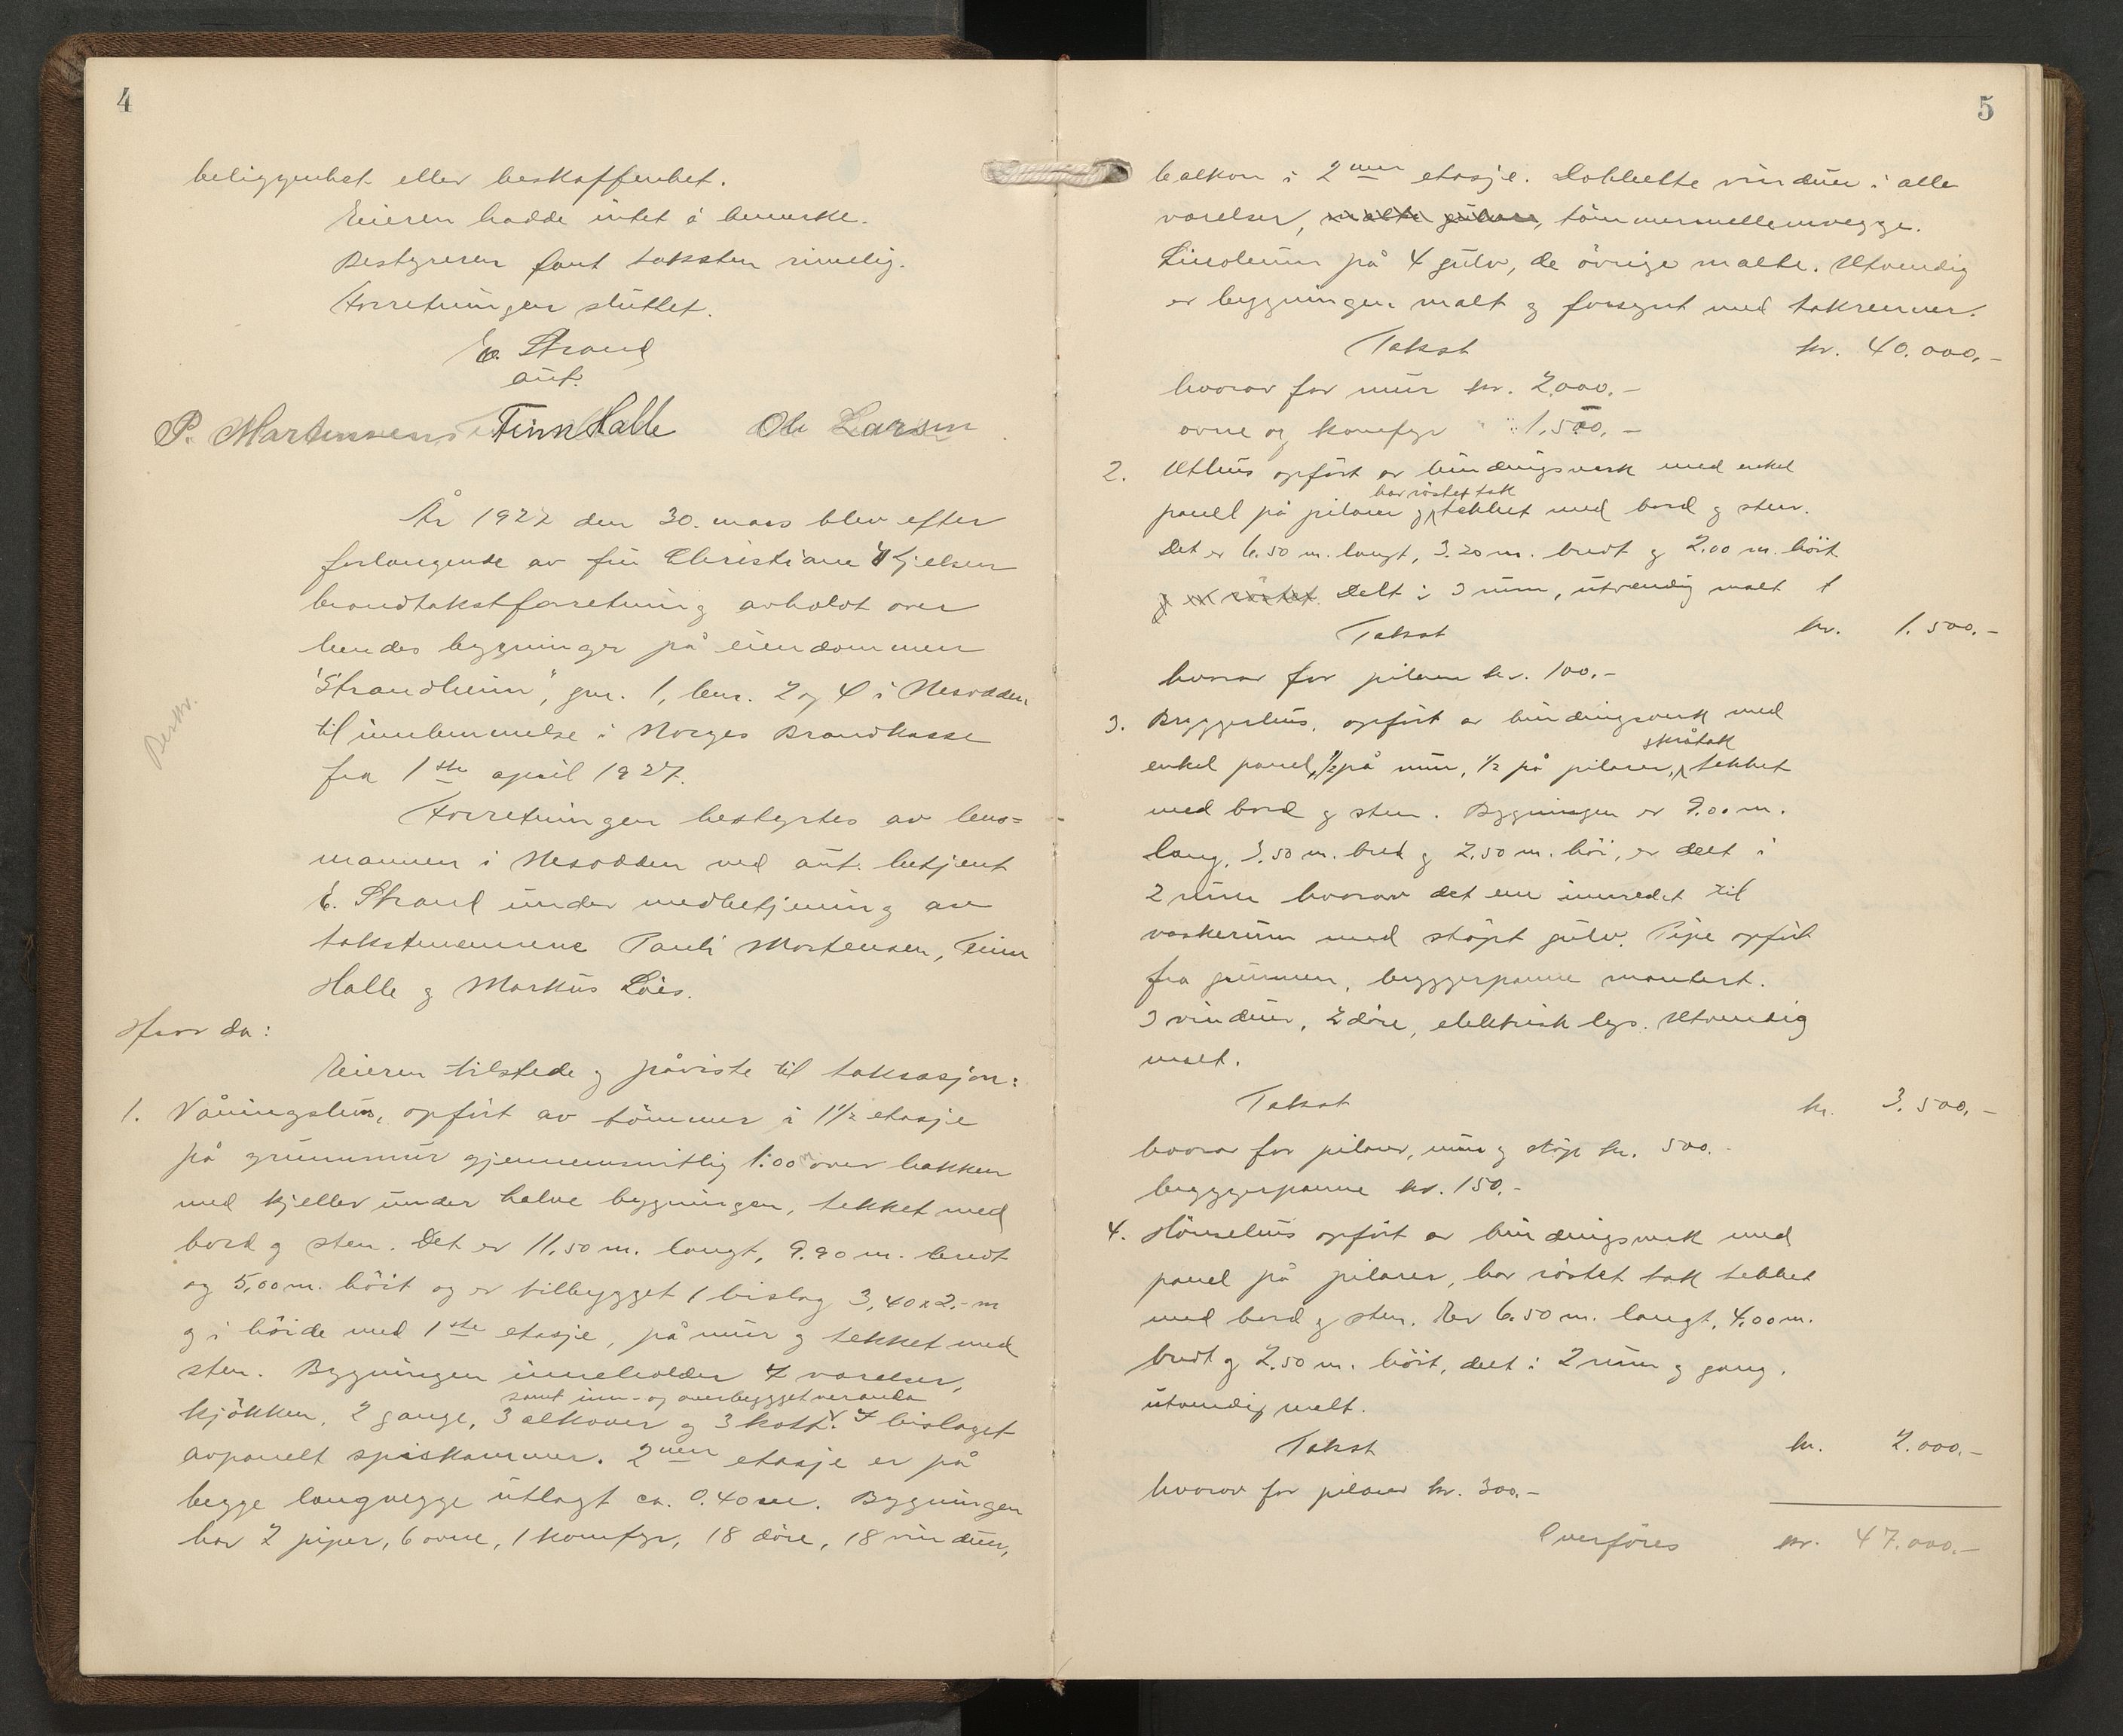 4
beliggenhet eller beskaffenhet.
Eieren hadde intet å bemerke.
Bestyreren fant taksten rimelig.
Forretningen sluttet.
E. Strand
aut.
P. Martinsen Finn Halle Ole Larsen
År 1927 den 30. mars blev efter
forlangende av fru Christiane
brandtakstforretning avholdt over
hendes bygninger på eiendommen
"Strandheim", gnr. 1, bnr. 2 og 4 i Nesodden
til innlemmelse i Norges Brandkasse
fra 1ste april 1927.
Forretningen bestyrtes av lens=
mannen i Nesodden ved aut. betjent
E. Strand under medbetjening av
takstmennene Pauli Mortensen, Finn
Halle og Markus
Hvor da:
Eieren tilstede og påviste til taksasjon:
1. Våningshus, opført av tømmer i 1 1/2 etasje
på grunnmur gjennemsnitlig 1.00 m over bakken
med kjeller under halve bygningen, tekket med
bord og sten. Det er 11,50 m. langt, 9.90 m. bredt
og 5,00 m. höit og er tilbygget 1 bislag 3,40 x 2.- m
og i höide med 1ste etasje, på mur og tekket med
sten. Bygningen inneholder 7 værelser,
samt inn- og overbygget veranda
kjökken, 2 gange, 3 alkover og 3 kott. I bislaget
avpanelt spiskammer. 2nen etasje er på
begge langvegge utlagt ca. 0.40 m. Bygningen
har 2 piper, 6 ovne, 1 komfyr, 18 döre, 18 vinduer,
5
balkon i 2nen etasje. Dobbelte vinduer i alle
værelser, malte gulver, tömmermellemvegge.
Linoleum på 4 gulv, de övrige malte. Utvendig
er bygningen malt og forsynt med takrenner.
Takst kr. 40.000.-
hvorav for mur kr. 2.000.-
ovne og komfyr " 1.500.-
2. Uthus opfört av bindingsverk med enkel
har röstet tak
panel på pilarer og tekket med bord og sten.
Det er 6.50 m. langt, 3.20 m. bredt og 2.00 m. höit
og er röstet. Delt i 3 rum, utvendig malt
Takst kr. 1.500.-
hvorav for pilarer kr. 100.-
3. Bryggerhus, opfört av bindingsverk med
skråtak
enkel panel, 1/2 på mur, 1/2 på pilarer, tekket
med bord og sten. Bygningen er 9.00 m.
lang, 3.50 m. bred og 2.50 m. höi, er delt i
2 rum hvorav det ene innredet til
vaskerum med stöpt gulv. Pipe opfört
fra grunnen, bryggerpanne montert.
3 vinduer, 2 döre, elektrisk lys. Utvendig
malt.
Takst kr. 3.500.-
hvorav for pilarer, mur og stöp kr. 500.-
bryggerpanne kr. 150.-
4. Hönsehus opfört av bindingsverk med
panel på pilarer, har röstet tak tekket
med bord og sten. Er 6.50 m. langt, 4.00 m.
bredt og 2.50 m. höit, delt i 2 rum og gang.
utvendig malt.
Takst kr. 2.000.-
hvorav for pilarer kr. 300.-
Overföres kr. 47.000.-